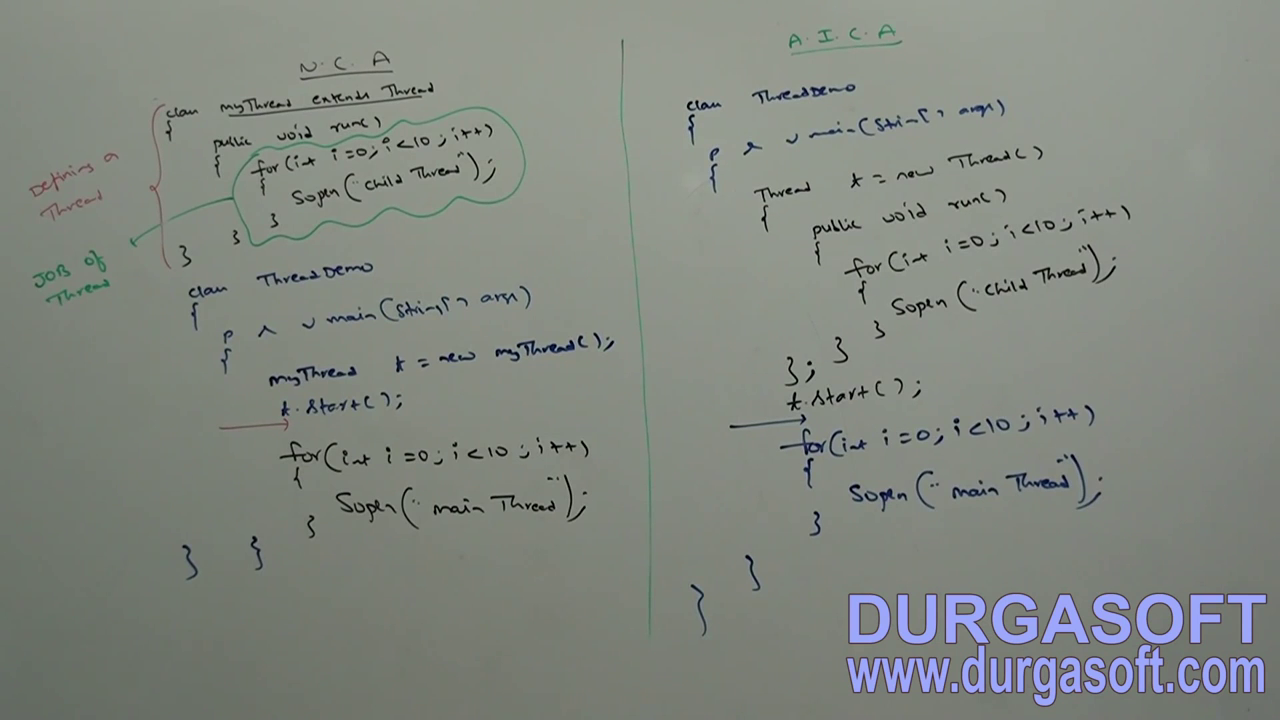 N. C. A
class myThread extends Thread
{
public void run()
{
for(int i=0; i<10; i++)
{
Sopen("child Thread");
}
}
}
Defining a
Thread
JOB of
Thread
class ThreadDemo
{
p s v main(String[] args)
{
myThread t = new myThread();
t.start();
for(int i=0; i<10; i++)
{
Sopen("main Thread");
}
}
}
A. I. C. A
class ThreadDemo
{
p s v main(String[] args)
{
Thread t = new Thread()
{
public void run()
{
for(int i=0; i<10; i++)
{
Sopen("child Thread");
}
}
};
t.start();
for(int i=0; i<10; i++)
{
Sopen("main Thread");
}
}
}
DURGASOFT
www.durgasoft.com